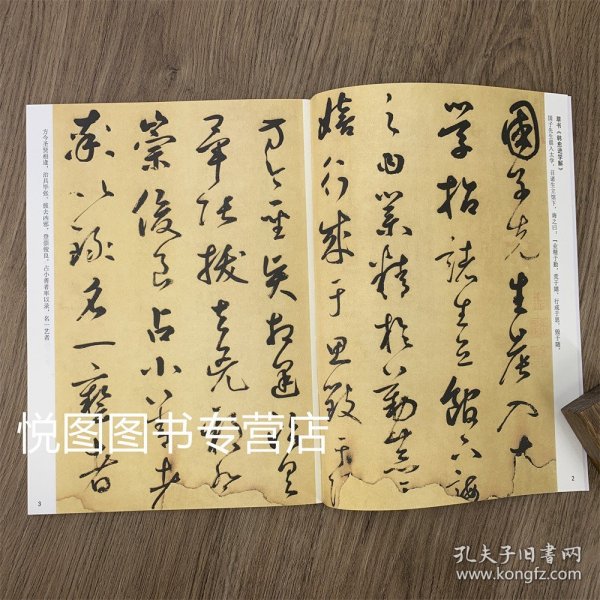 草书《韩愈进学解》
国子先生晨入太学，召诸生立馆下，诲之曰：“业精于勤，荒于嬉，行成于思，毁于随。
國子先生晨入大
学招諸生立館下誨
之曰業精於勤荒于
嬉行成于思毀于
2
方今聖賢相逢治具
畢張拔去兇邪登
崇俊良占小善者
率以錄名一藝者
方今圣贤相逢，治具毕张，拔去凶邪，登崇俊良，占小善者率以录，名一艺者
3
悦图图书专营店
孔夫子旧书网
www.kongfz.com